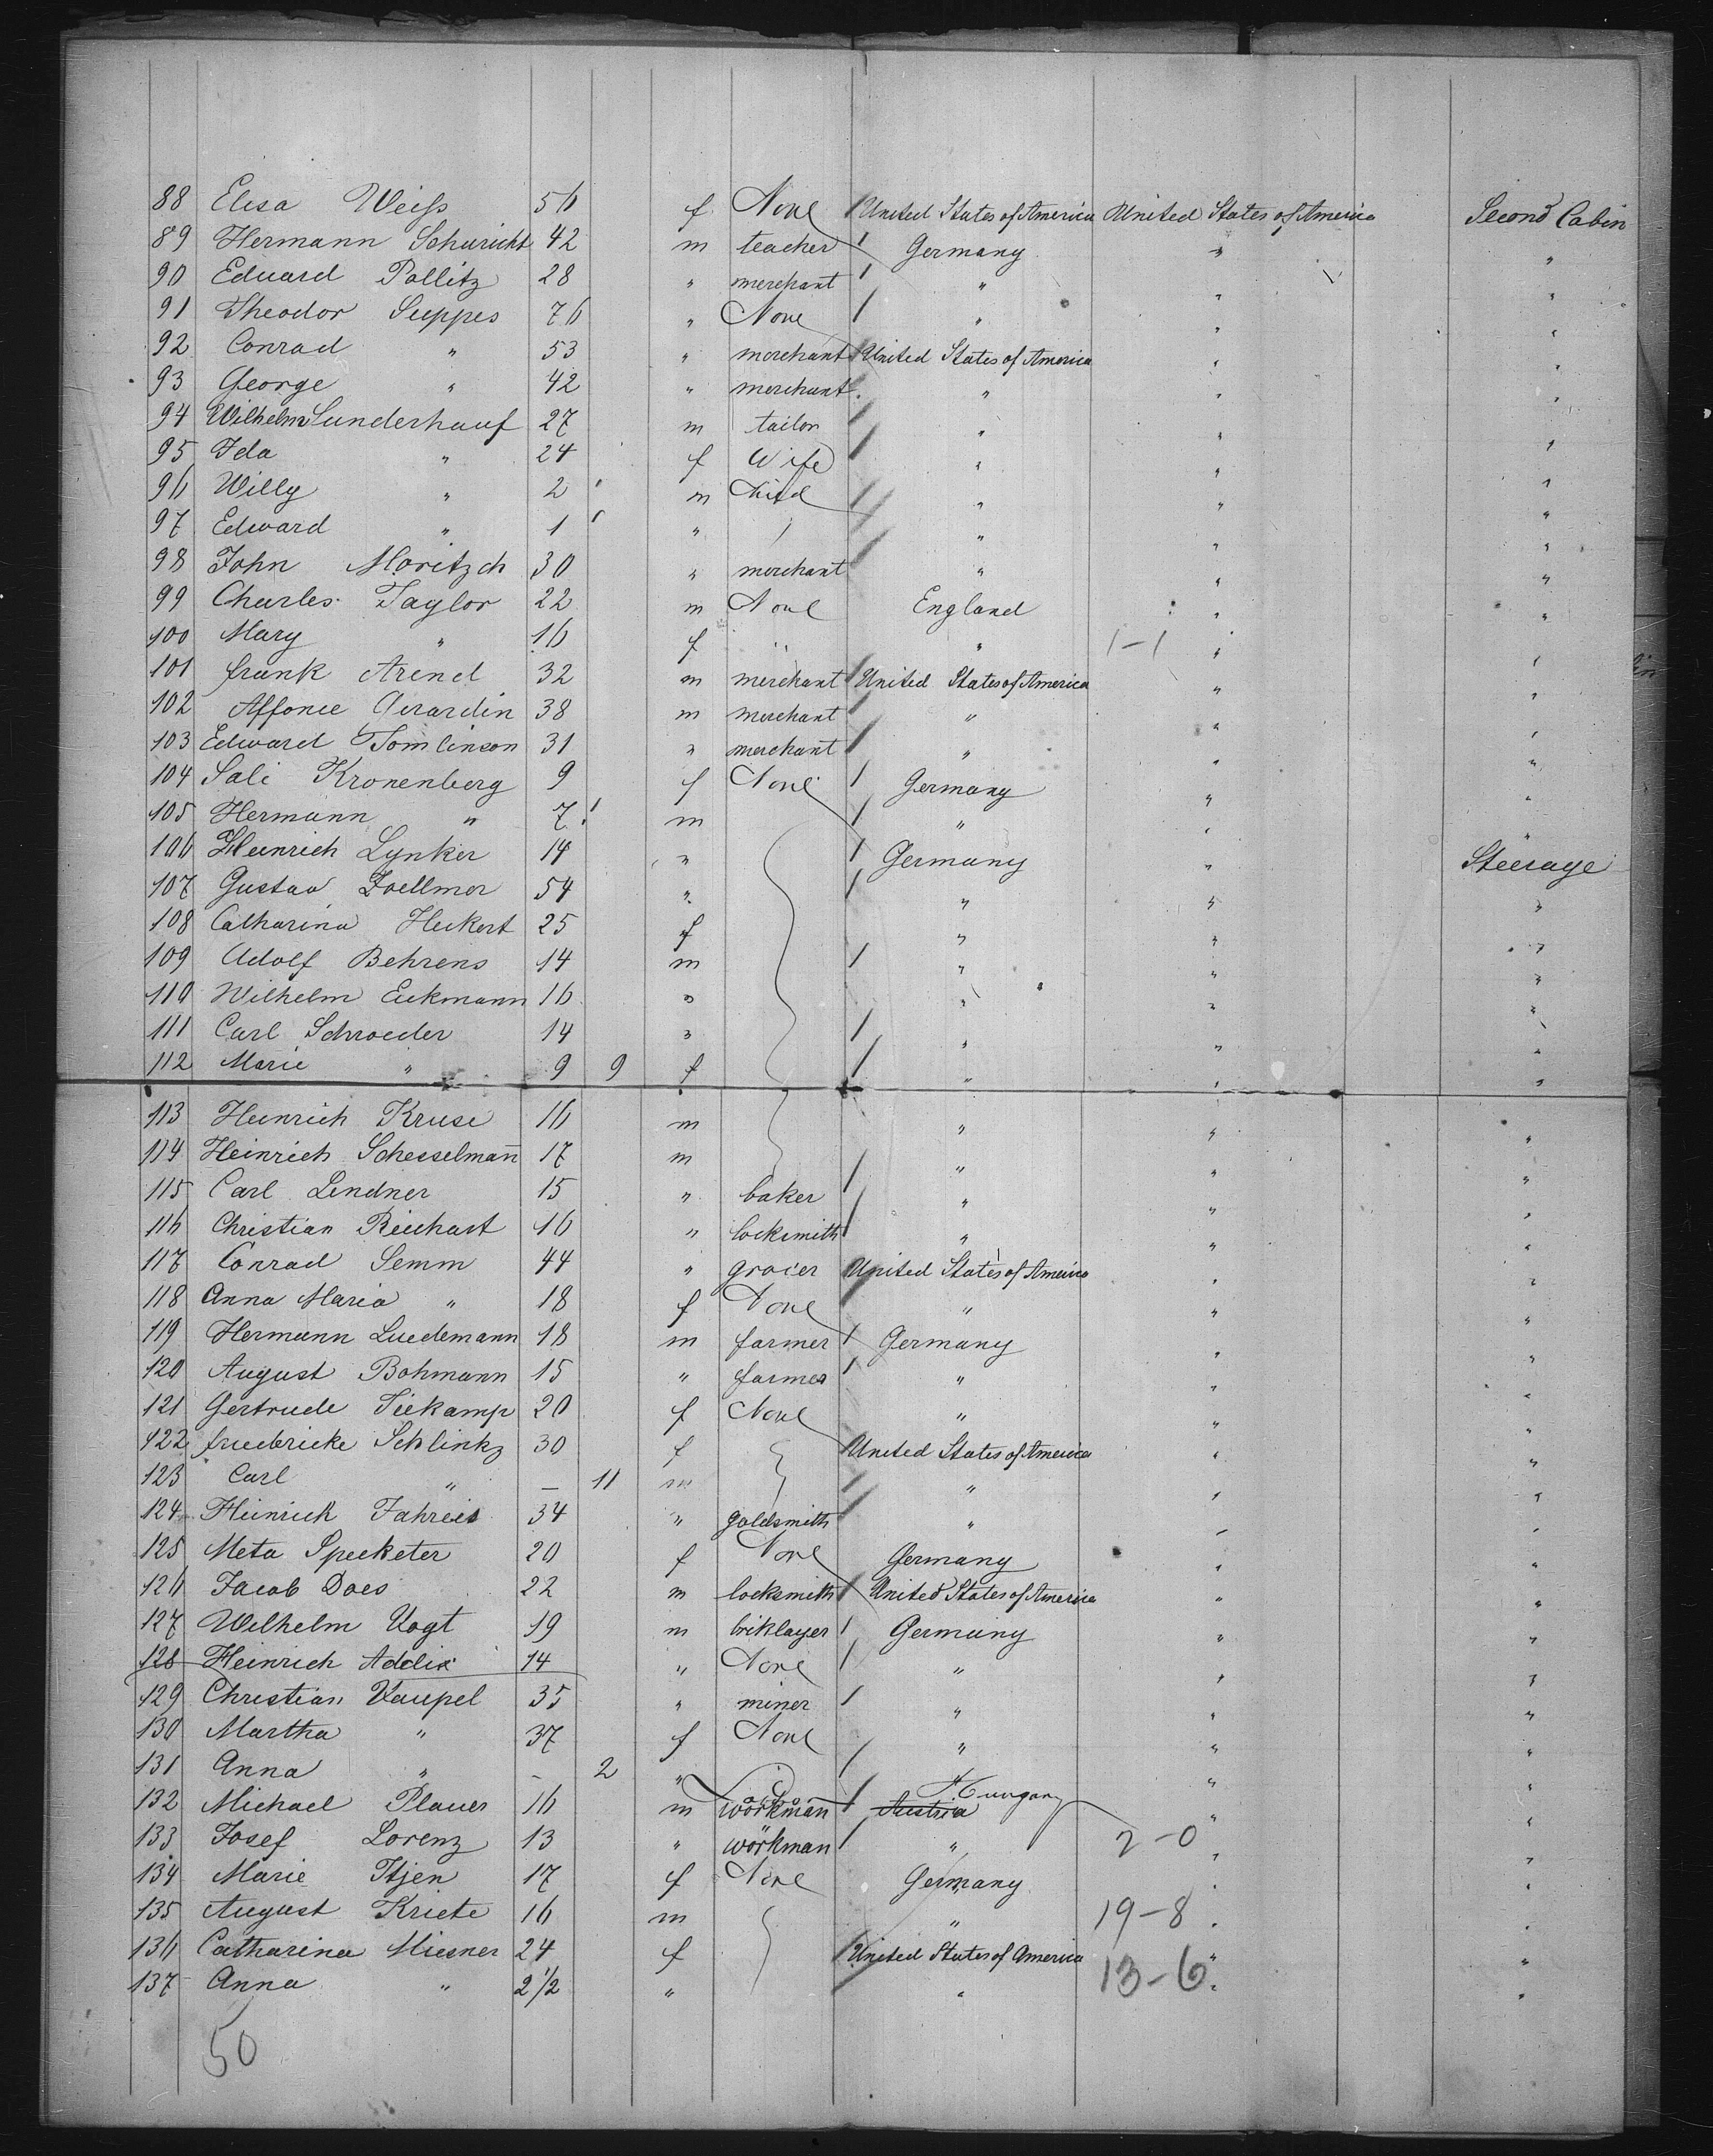 88 Elisa Weiß 56 f None United States of America United States of America Second Cabin
89 Hermann Schuricht 42 m teacher Germany " "
90 Eduard Pollitz 28 " merchant " " "
91 Theodor Suppes 76 " None " " "
92 Conrad " 53 " merchant United States of America " "
93 George " 42 " merchant " " "
94 Wilhelm Sunderhauf 27 m tailor " " "
95 Ida " 24 f Wife " " "
96 Willy " 2 m Child " " "
97 Edward " 1 " " " "
98 John Moritzch 30 " merchant " " "
99 Charles Taylor 22 m None England " "
100 Mary " 16 f " " 1-1 " "
101 frank Arend 32 m merchant United States of America " "
102 Affonce Girardin 38 m merchant " " "
103 Edward Tomlinson 31 " merchant " " "
104 Sali Kronenberg 9 f None Germany " "
105 Hermann " 7 m " " "
106 Heinrich Lynker 14 " Germany " Steerage
107 Gustav Zoellmer 54 " " " "
108 Catharina Heckert 25 f " " "
109 Adolf Behrens 14 m " " "
110 Wilhelm Eickmann 16 " " " "
111 Carl Schroeder 14 " " " "
112 Marie " 9 9 f " " "
113 Heinrich Kruse 16 m " " "
114 Heinrich Schesselmañ 17 m " " "
115 Carl Lindner 15 " baker " " "
116 Christian Reichart 16 " locksmith " " "
117 Conrad Semm 44 " grocer United States of America " "
118 Anna Maria " 18 f None " " "
119 Hermann Luedemann 18 m farmer Germany " "
120 August Bohmann 15 " farmer " " "
121 Gertrude Siekamp 20 f None " " "
122 friedericke Schlinkz 30 f United States of America " "
123 Carl " – 11 m " " "
124 Heinrich Fahreis 34 " goldsmith " " "
125 Meta Specketer 20 f None Germany " "
126 Jacob Does 22 m locksmith United States of America " "
127 Wilhelm Vogt 19 m briklayer Germany " "
128 Heinrich Addix 14 " None " " "
129 Christian Vaupel 35 " miner " " "
130 Martha " 37 f None " " "
131 Anna " – 2 " " "
132 Michael Plauer 16 m workman Austria Hungary " "
133 Josef Lorenz 13 " workman " 2-0 " "
134 Marie Itjen 17 f None Germany " "
135 August Kriete 16 m " 19-8 " "
136 Catharina Miesner 24 f United States of America " "
137 Anna " 2 1/2 " " 13-6 " "
50